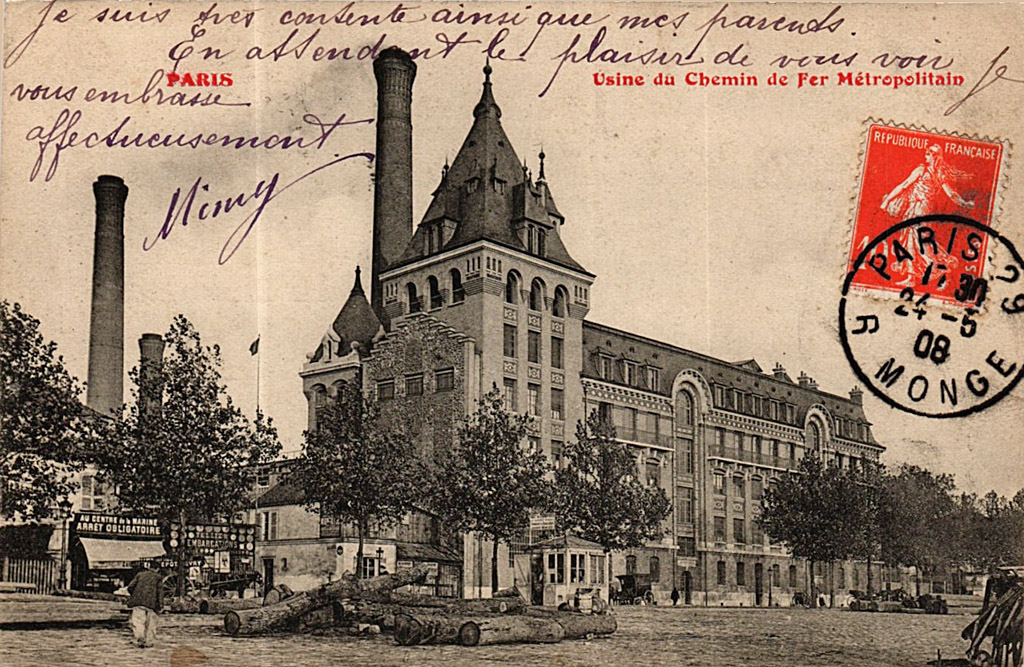 Je suis très contente ainsi que mes parents.
En attendant le plaisir de vous voir je
vous embrasse
affectueusement
Mimy
PARIS
Usine du Chemin de Fer Métropolitain
REPUBLIQUE FRANÇAISE
PARIS-29
17 30
24 -5
08
R MONGE
AU CENTRE de la MARINE
ARRÊT OBLIGATOIRE